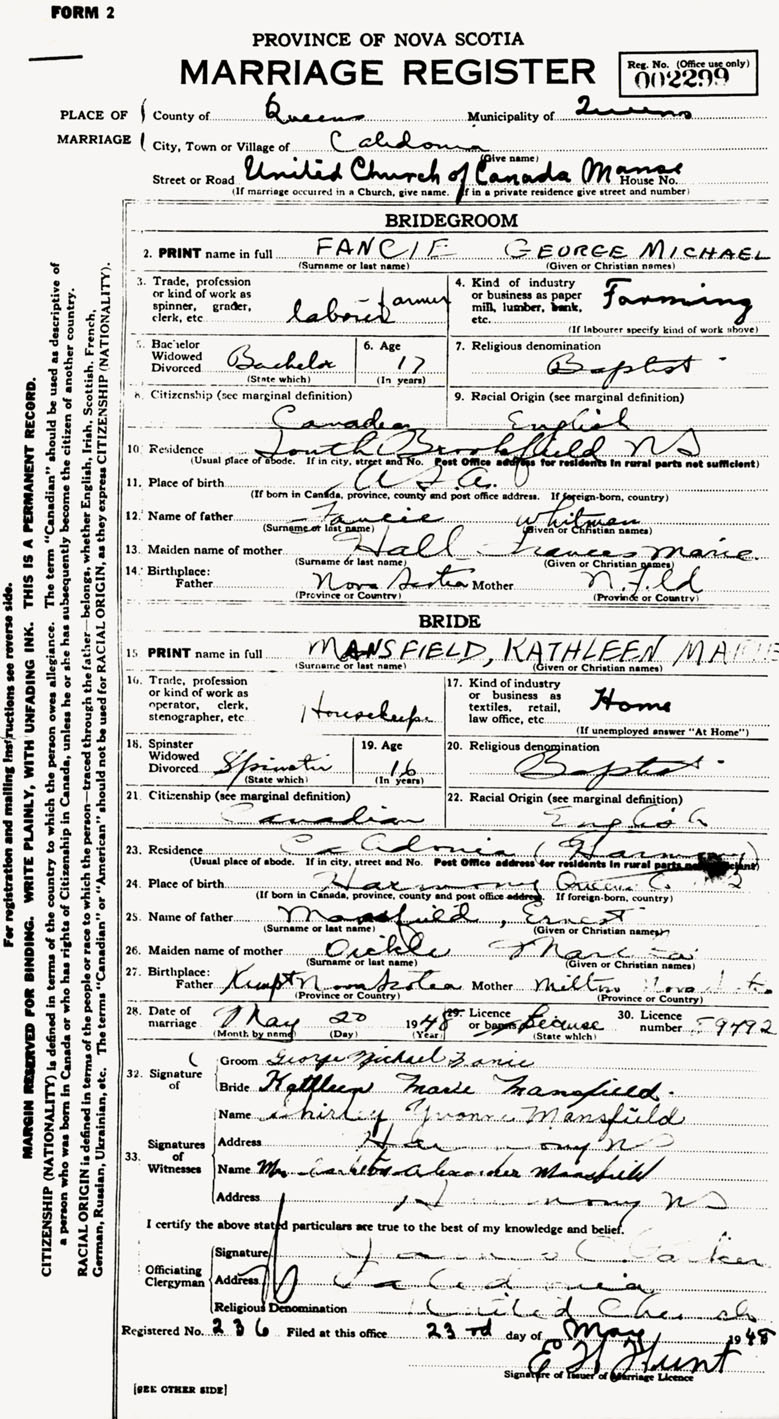 FORM 2
PROVINCE OF NOVA SCOTIA
MARRIAGE REGISTER
Reg. No. (Office use only)
002299
PLACE OF MARRIAGE
County of Queens Municipality of Queens
City, Town or Village of Caledonia
(Give name)
Street or Road United Church of Canada Manse House No.
(If marriage occurred in a Church, give name. If in a private residence give street and number)
BRIDEGROOM
2. PRINT name in full FANCIE GEORGE MICHAEL
(Surname or last name) (Given or Christian names)
3. Trade, profession or kind of work as spinner, grader, clerk, etc. labourer farmer
4. Kind of industry or business as paper mill, lumber, bank, etc. Farming
(If labourer specify kind of work above)
5. Bachelor Widowed Divorced Bachelor
(State which)
6. Age 17
(In years)
7. Religious denomination Baptist
8. Citizenship (see marginal definition) Canadian
9. Racial Origin (see marginal definition) English
10. Residence South Brookfield NS
(Usual place of abode. If in city, street and No. Post Office address for residents in rural parts not sufficient)
11. Place of birth U.S.A.
(If born in Canada, province, county and post office address. If foreign-born, country)
12. Name of father Fancie Whitman
(Surname or last name) (Given or Christian names)
13. Maiden name of mother Hall Frances Marie
(Surname or last name) (Given or Christian names)
14. Birthplace: Father Nova Scotia Mother N.Fld
(Province or Country) (Province or Country)
BRIDE
15 PRINT name in full MANSFIELD, KATHLEEN MARIE
(Surname or last name) (Given or Christian names)
16. Trade, profession or kind of work as operator, clerk, stenographer, etc
17. Kind of industry or business as textiles, retail, law office, etc Home
(If unemployed answer "At Home")
18. Spinster Widowed Divorced Spinster
(State which)
19. Age 16
(In years)
20. Religious denomination Baptist
21. Citizenship (see marginal definition) Canadian
22. Racial Origin (see marginal definition) English
23. Residence Caledonia (Harmony)
(Usual place of abode. If in city, street and No. Post Office address for residents in rural parts not sufficient)
24. Place of birth Harmony Queens Co.
(If born in Canada, province, county and post office address. If foreign-born, country)
25. Name of father Mansfield, Ernest
(Surname or last name) (Given or Christian names)
26. Maiden name of mother Dickie
(Surname or last name) (Given or Christian names)
27. Birthplace: Father Kempt Nova Scotia Mother Milton Nova Scotia
(Province or Country) (Province or Country)
28. Date of marriage May 20 1948
(Month by name) (Day) (Year)
29. Licence or banns License
(State which)
30. Licence number 59792
32. Signature of
Groom George Michael Fancie
Bride Kathleen Marie Mansfield.
33. Signatures of Witnesses
Name Shirley Yvonne Mansfield
Address Harmony NS
Name Mr. Alexander Mansfield
Address Harmony NS
I certify the above stated particulars are true to the best of my knowledge and belief.
Officiating Clergyman
Signature
Address Caledonia
Religious Denomination United Church
Registered No. 236 Filed at this office 23rd day of May 1948
E H Hunt
Signature of Issuer of Marriage Licence
[SEE OTHER SIDE]
For registration and mailing instructions see reverse side.
MARGIN RESERVED FOR BINDING. WRITE PLAINLY, WITH UNFADING INK. THIS IS A PERMANENT RECORD.
CITIZENSHIP (NATIONALITY) is defined in terms of the country to which the person owes allegiance. The term "Canadian" should be used as descriptive of
a person who was born in Canada or who has rights of Citizenship in Canada, unless he or she has subsequently become the citizen of another country.
RACIAL ORIGIN is defined in terms of the people or race to which the person—traced through the father—belongs, whether English, Irish, Scottish, French,
German, Russian, Ukrainian, etc. The terms "Canadian" or "American" should not be used for RACIAL ORIGIN, as they express CITIZENSHIP (NATIONALITY).